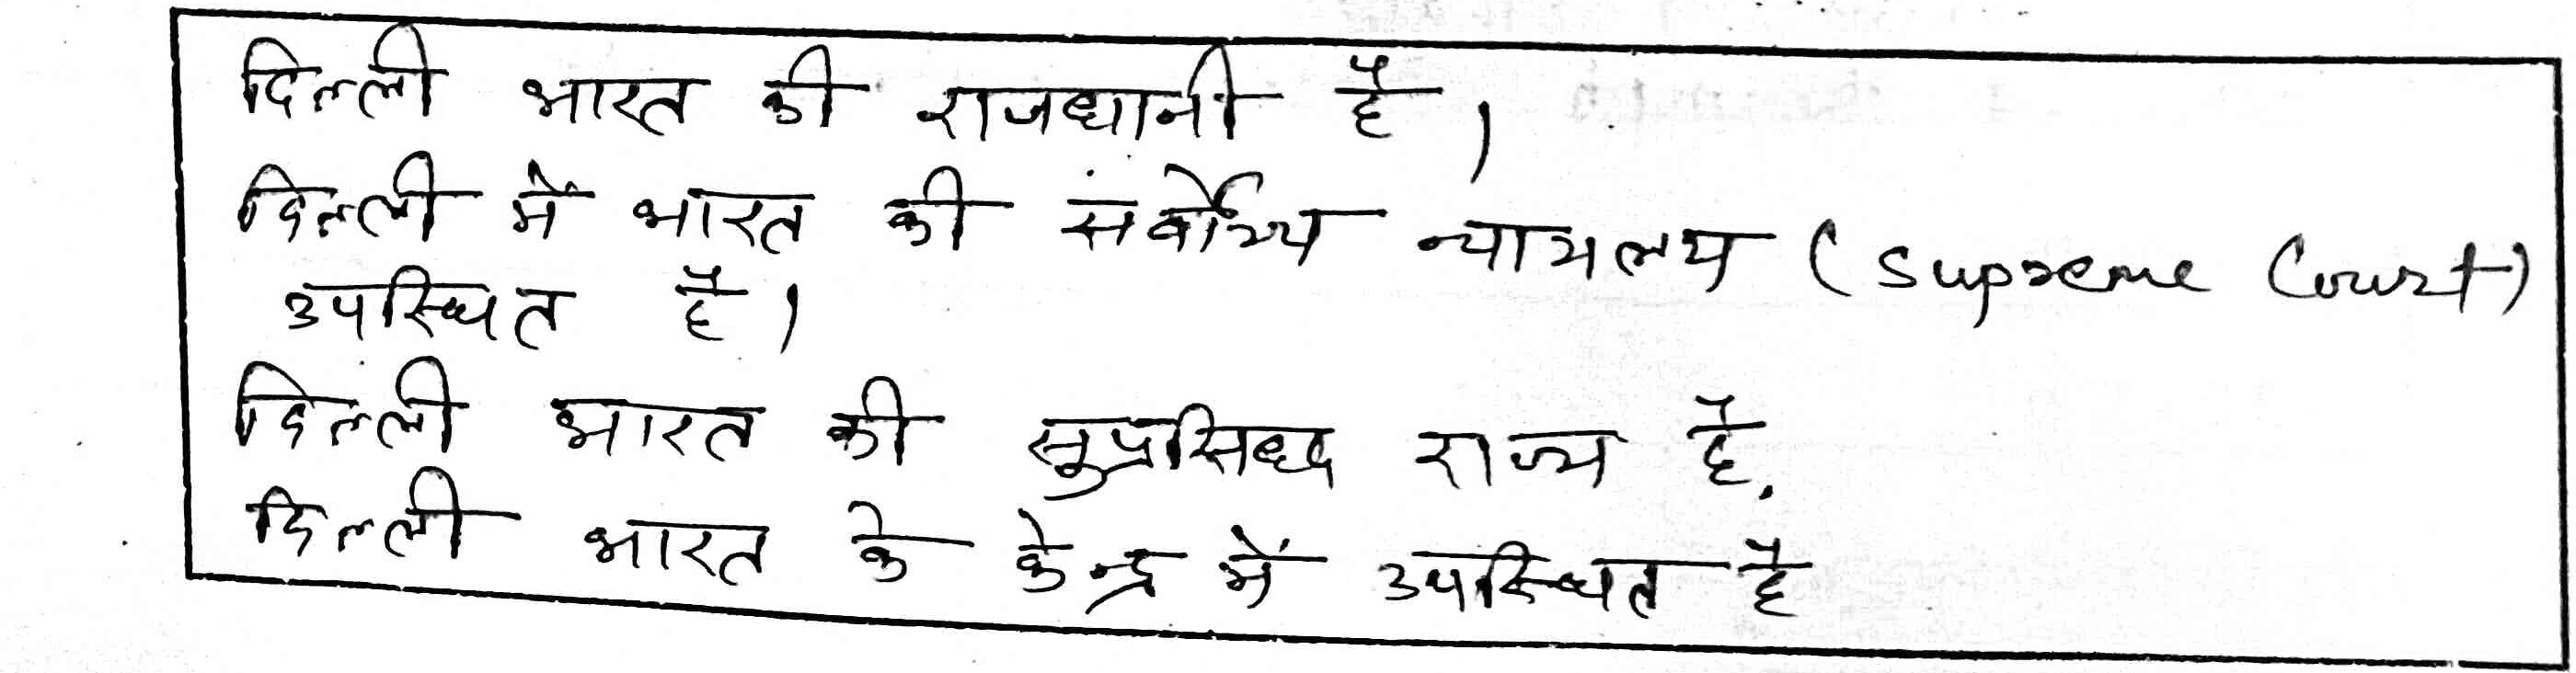 दिल्ली भारत की राजधानी है।
दिल्ली में भारत की सर्वोच्य न्यायलय (Supreme Court)
उपस्थित है।
दिल्ली भारत की सुप्रसिध्द राज्य है.
दिल्ली भारत के केन्द्र में उपस्थित है